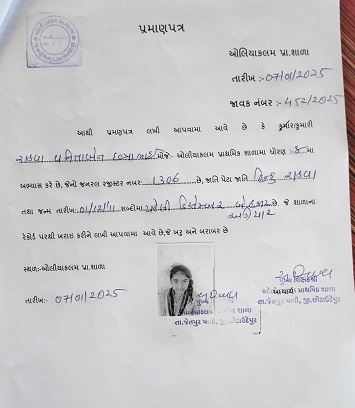 પ્રમાણપત્ર
ઓલિયાકલમ પ્રા.શાળા
તારીખ :- 07/01/2025
જાવક નંબર :- 452/2025
આથી પ્રમણપત્ર લખી આપવામા આવે છે કે કુમાર/કુમારી
રાઠવા ખોજે:- ઓલીયાકલમ પ્રાથમિક શાળામા ધોરણ :- 8 મા
અભ્યાસ કરે છે, જેનો જનરલ રજીસ્ટર નંબર 1306 છે, જાતિ પેટા જાતિ હિન્દુ રાઠવા
તથા જન્મ તારીખ 01/12/11 શબ્દોમા પહેલી ડિસેમ્બર બે હજાર છે. જે શાળાના
અગિયાર
રેકોર્ડ પરથી ખરાઇ કરીને લખી આપવામા આવે છે,જે ખરૂ અને બરાબર છે
સ્થળ:-ઓલીયાકલમ પ્રા.શાળા
તારીખ:- 07/01/2025
મુખ્ય શિક્ષકશ્રી
આચાર્ય પ્રાથમિક શાળા
તા.જેતપુર પાવી, જી.છોટાઉદેપુર
મુખ્ય
પ્રાથમિક શાળા
તા.જેતપુર પાવી, જી.છોટાઉદેપુર